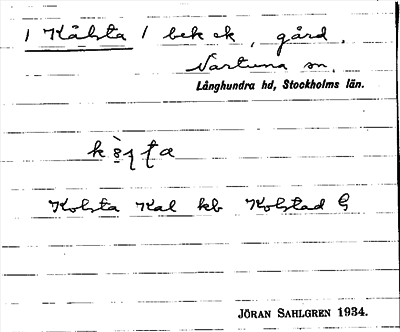 / Kålsta / bek ek, gård.
Nartuna sn.
Långhundra hd, Stockholms län.
Kolsta Kal kb Kolstad G
JÖRAN SAHLGREN 1934.